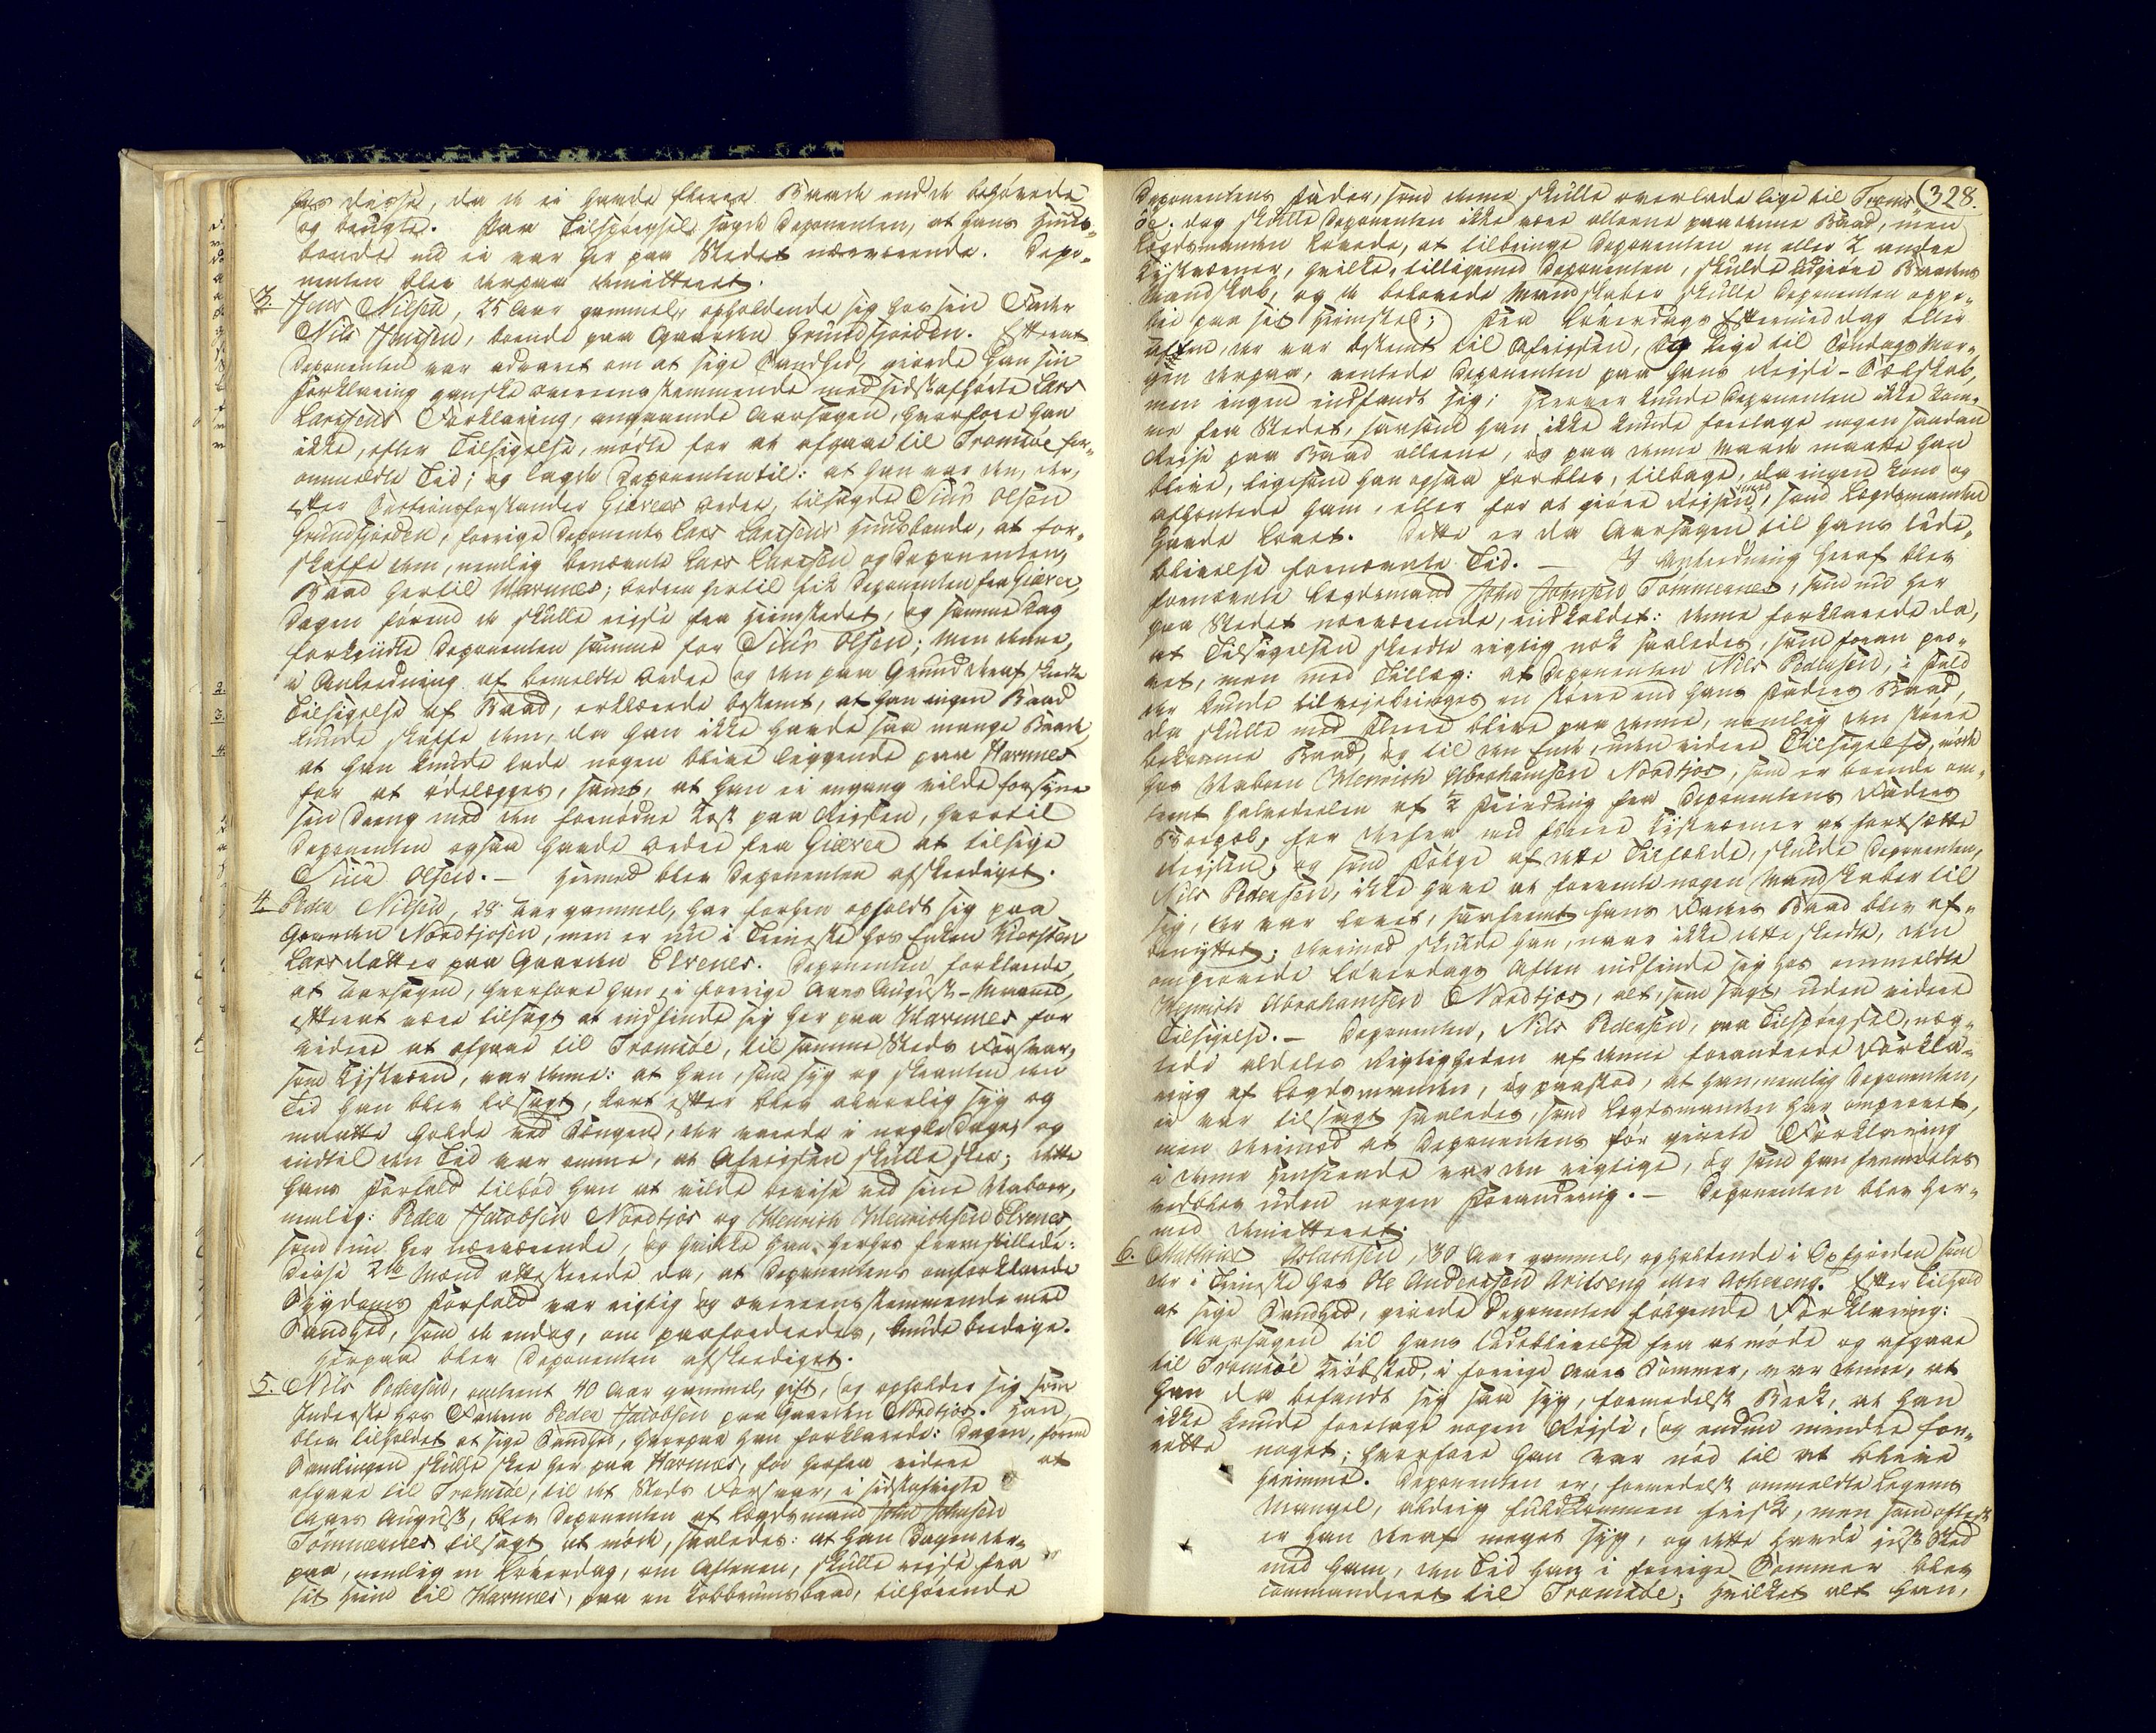 hos disse, da de ei havde fleere Baade end de behøvede
og brugte. Paa Tilspørgsel sagde Deponenten, at hans Huus-
bonde nu ei var her paa Stedet nærværende. Depo-
nenten blev derpaa demitteret.
3. Jens Nilsen, 25 Aar gammel, opholdende sig hos sin Fader
Nils Jensen, boende paa Gaarden Grundfjorden. Efterat
Deponenten var advaret om at sige Sandhed, gjorde han sin
Forklaring ganske overeensstemmende med sidstafhørte Lars
Larsens Forklaring, angaaende Aarsagen, hvorfore han
ikke, efter Tilsigelse, mødte for at afgaae til Tromsøe for-
ommeldte Tid; og lagde Deponenten til: at han var den, der,
efter Sectionsforstander Giævers Ordre, tilsagde Siur Olsen
Grundfjorden, forrige Deponents Lars Larsens Huusbonde, at for-
skaffe dem, nemlig benævnte Lars Larsen og Deponenten,
Baad hertil Harnnes; Ordren hertil fik Deponenten fra Giæver
Dagen førend de skulle reise fra Hiemstedet, og samme Dag
forkyndte Deponenten samme for Siur Olsen; men denne,
i Anledning af bemeldte Ordre og den paa Grund deraf skeedte
Tilsigelse af Baad, erklærede bestemt, at han ingen Baad
kunde skaffe dem, da han ikke havde saa mange Baade,
at han kunde lade nogen blive liggende paa Harnnes
for at ødelægges, samt, at han ei engang vilde forsyne
sin Dreng med den fornødne Kost paa Reisen, hvortil
Deponenten ogsaa havde Ordre fra Giæver at tilsige
Siur Olsen. — Hermed blev Deponenten afskediget.
4. Peder Nilsen, 28 Aar gammel, har forhen opholdt sig paa
Gaarden Nordkjosen, men er nu i Tieneste hos Enken Kiersten
Larsdatter paa Gaarden Elvenes. Deponenten forklarede,
at Aarsagen, hvorfore han, i forrige Aars August-Maaned,
efterat være tilsagt at indfinde sig her paa Harnnes for
videre at afgaae til Tromsøe, til samme Steds Forsvar,
som Kystværn, var denne: at han, som syg og skrantende den
Tid han blev tilsagt, kort efter blev alvorlig syg og
maatte holde ved Sengen, der varede i nogle Dage, og
indtil den Tid var omme, at Afreisen skulle skee; dette
hans Forfald tilbød han at vilde bevise ved sine Naboer,
nemlig: Peder Jacobsen Nordkjos og Henrich Henrichsen Elvenes,
som nu her nærværende, og hvilke han herhos fremstillede:
Disse 2de Mænd attesterede da, at Deponentens omforklarede
Sygdoms Forfald var rigtig og overeensstemmende med
Sandhed, som de endog, om paafordredes, kunde beedige.
Herpaa blev Deponenten afskediget.
5. Nils Pedersen, omtrent 40 Aar gammel, gift, og opholder sig som
Inderste hos Faderen Peder Jacobsen paa Gaarden Nordkjos. Han
blev tilholdet at sige Sandhed, hvorpaa han forklarede: Dagen, førend
Samlingen skulle skee her paa Harnnes, for herfra videre at
afgaae til Tromsøe, til det Steds Forsvar, i sidstafvigte
Aars August, blev Deponenten af Lægdsmand John Johnsen
Tømmernes tilsagt at møde, saaledes: at han Dagen der-
paa, nemlig en Løverdag, om Aftenen, skulle reise fra
sit Hiem til Harnnes, paa en Kobberumsbaad, tilhørende
328.
Deponentens Fader, som denne skulle overlade lige til Troms-
öe; dog skulle Deponenten ikke være alleene paa denne Baad, men
Lægdsmanden lovede, at tilbringe Deponenten en eller 2 andre
Kystværner, hvilke, tilligemed Deponenten, skulde udgiøre Baadens
Mandskab, og de belovede Mandskaber skulle Deponenten oppe-
bie paa sit Hiemsted; Fra Løverdags Eftermiddag eller
Aften, der var bestemt til Afreisen, og lige til Søndags Mor-
gen derpaa, ventede Deponenten paa hans Reise-Selskab,
men ingen indfandt sig; herover kunde Deponenten ikke kom-
me fra Stedet, saasom han ikke kunde foretage nogen saadan
Reise paa Baad alleene, og paa denne Maade maatte han
blive, ligesom han ogsaa forblev, tilbage, da ingen kom og
afhentede ham, eller for at giøre Reisen med, som Lægdsmanden
havde lovet. Dette er da Aarsagen til hans Ude-
blivelse fornævnte Tid. — I Anledning heraf blev
fornævnte Lægdsmand John Johnsen Tømmernes, som nu her
paa Stedet nærværende, indkaldet: denne forklarede da,
at Tilsigelsen skeedte rigtig nok saaledes, som foran pro-
vet, men med Tillæg: at Deponenten Nils Pedersen, i Fald
der kunde tilveiebringes en større end hans Faders Baad,
da skulle med flere blive paa denne, nemlig den større
bekomne Baad, og til den Ende, uden videre Tilsigelse, møde
hos Naboen Henrich Abrahamsen Nordkjos, som er boende om-
trent halvedeelen af ½ Fierding fra Deponentens Faders
Boepæl, for derfra med flere Kystværner at fortsætte
Reisen, og som Følge af dette Tilfælde, skulde Deponenten,
Nils Pedersen, ikke have at forvente nogen Mandskaber til
sig, der var lovet, saafremt hans Faders Baad blev af-
benyttet; derimod skulde han, naar ikke dette skeedte, den
omprovede Løverdags Aften indfinde sig hos ommeldte
Henrich Abrahamsen Nordkjos, alt, som sagt, uden videre
Tilsigelse. — Deponenten, Nils Pedersen, paa Tilspørgsel, næg-
tede aldeles Rigtigheden af denne forandrede Forkla-
ring af Lægdsmanden, og paastod, at han, nemlig Deponenten,
ei var tilsagt saaledes, som Lægdsmanden har omprovet,
men derimod at Deponentens før givne Forklaring
i denne Henseende var den rigtige, og som han fremdeles
vedblev uden nogen Forandring. — Deponenten blev her-
med demitteret.
6. Mathias Aslachsen, 30 Aar gammel, opholdende i Oxfjorden som
der i Tieneste hos Ole Andersen Arilseng eller Achereng. Efter Tilhold
at sige Sandhed, gjorde Deponenten følgende Forklaring:
Aarsagen til hans Udeblivelse fra at møde og afgaae
til Tromsøe Kiøbsted, i forrige Aars Sommer, var denne, at
han da befandt sig saa syg, formedelst Brok, at han
ikke kunde foretage nogen Reise, og endnu mindre for-
rette noget; hvorfore han var nød til at blive
hiemme. Deponenten er, formedelst ommeldte Legems
Mangel, aldrig fuldkommen frisk, men som oftest
er han deraf meget syg, og dette havde just Sted
med ham, den Tid han i forrige Sommer blev
commanderet til Tromsøe; hvilket alt han,